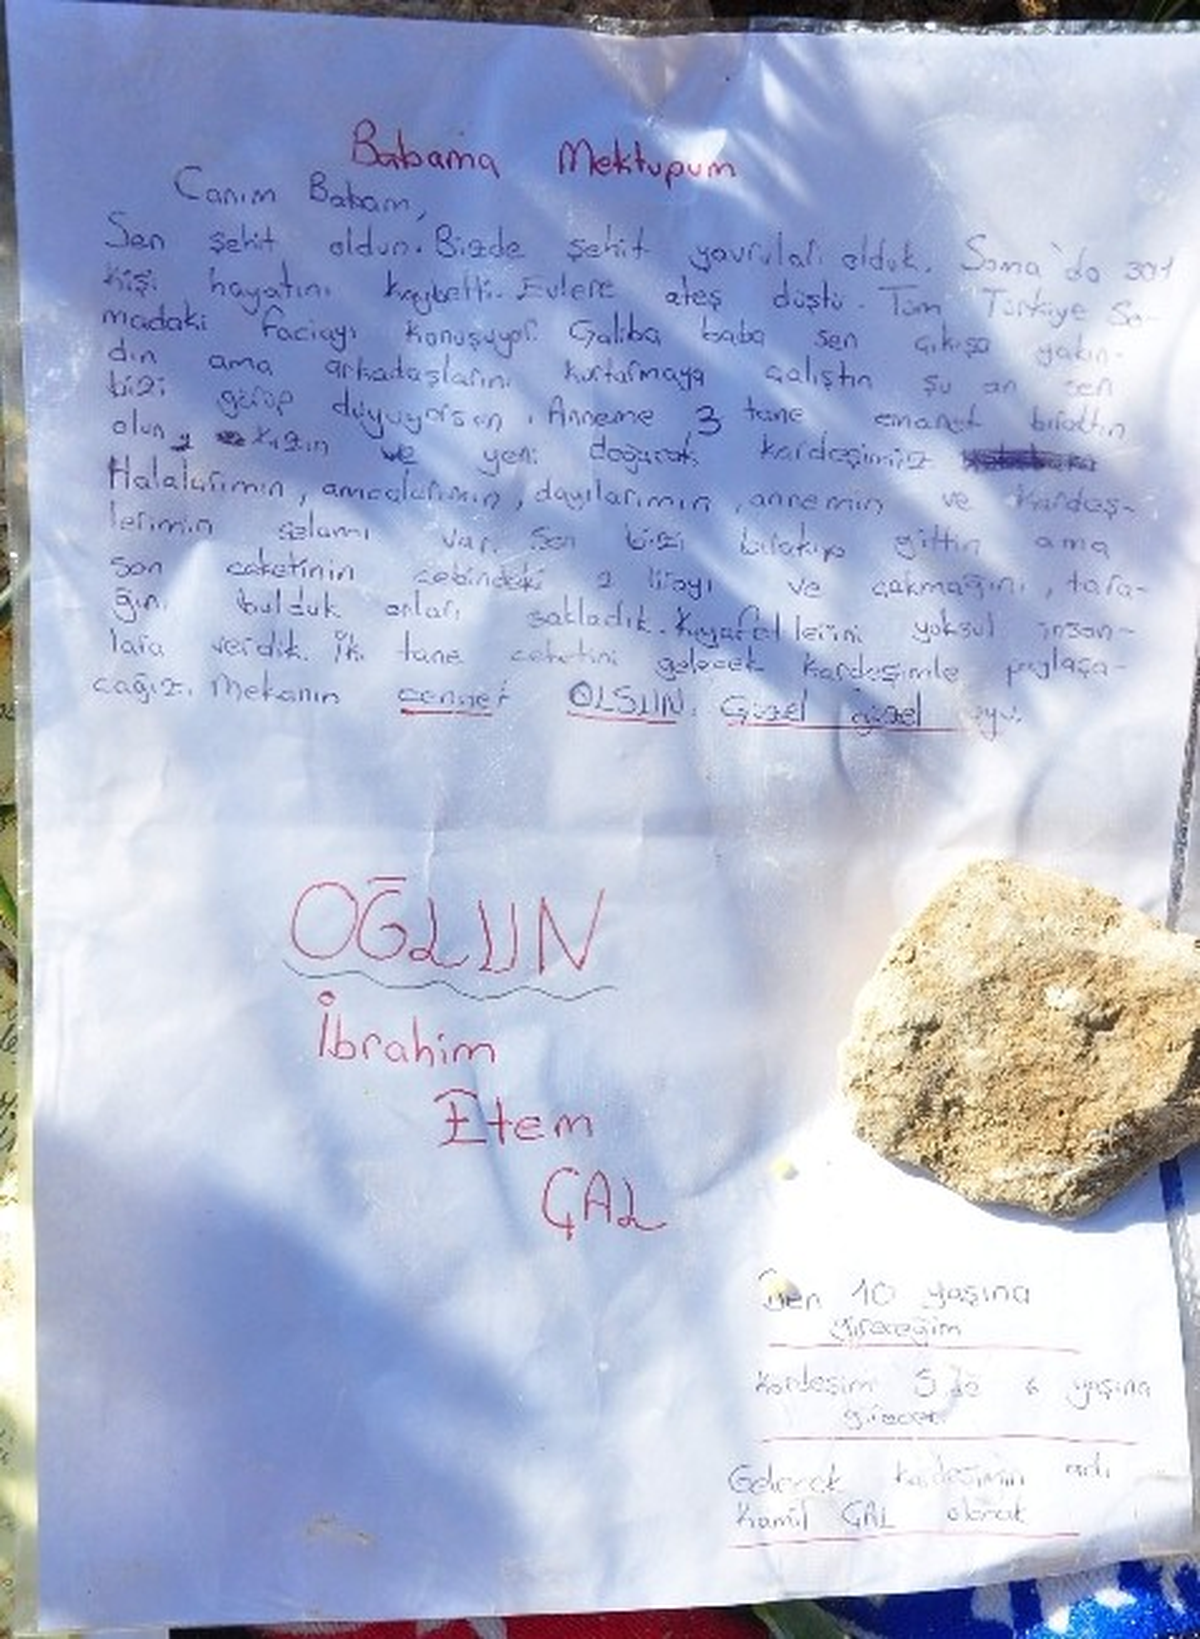 Babama Mektupum
Canım Babam,
Sen şehit oldun. Bizde şehit yavruları olduk. Soma'da 301
kişi hayatını kaybetti. Evlere ateş düştü. Tüm Türkiye So-
madaki faciayı konuşuyor. Galiba baba sen çıkışa yakın-
dın ama arkadaşlarını kurtarmaya çalıştın şu an sen
bizi görüp duyuyorsun. Anneme 3 tane emanet bıraktın
olun, kızın ve yeni doğacak kardeşimiz
Halalarımın, amcalarımın, dayılarımın, annemin ve kardaş-
lerimin selamı var. Sen bizi bırakıp gittin ama
son caketinin cebindeki 2 lirayı ve çakmağını, tara-
ğını bulduk onları sakladık. Kıyafetlerini yoksul insan-
lara verdik. İki tane ceketini gelecek kardeşimle paylaşa-
cağız. Mekanın cennet OLSUN. Güzel güzel uyu.
OĞLUN
İbrahim
Etem
ÇAL
Ben 10 yaşına
gireceğim
Kardeşim 6 yaşına
girecek
Gelecek kardeşimin adı
Kamil ÇAL olacak